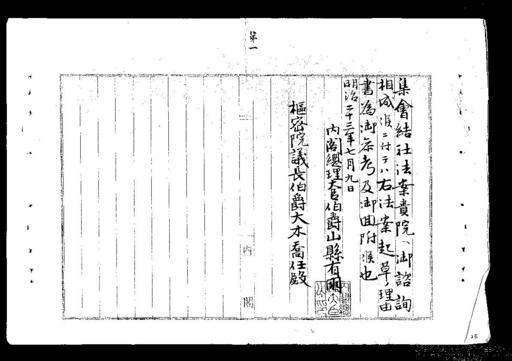 第一
集會結社法案貴院ヘ御諮詢
相成候ニ付テハ右法案起草ノ理由
書為御参考及御回附候也
明治二十三年七月九日
内閣總理大臣伯爵山縣有朋
樞密院議長伯爵大木喬任殿
内閣